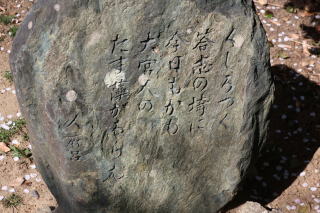 くしろつく
答志の埼に
今日もかも
大宮人の
たま藻かるらん
人麻呂